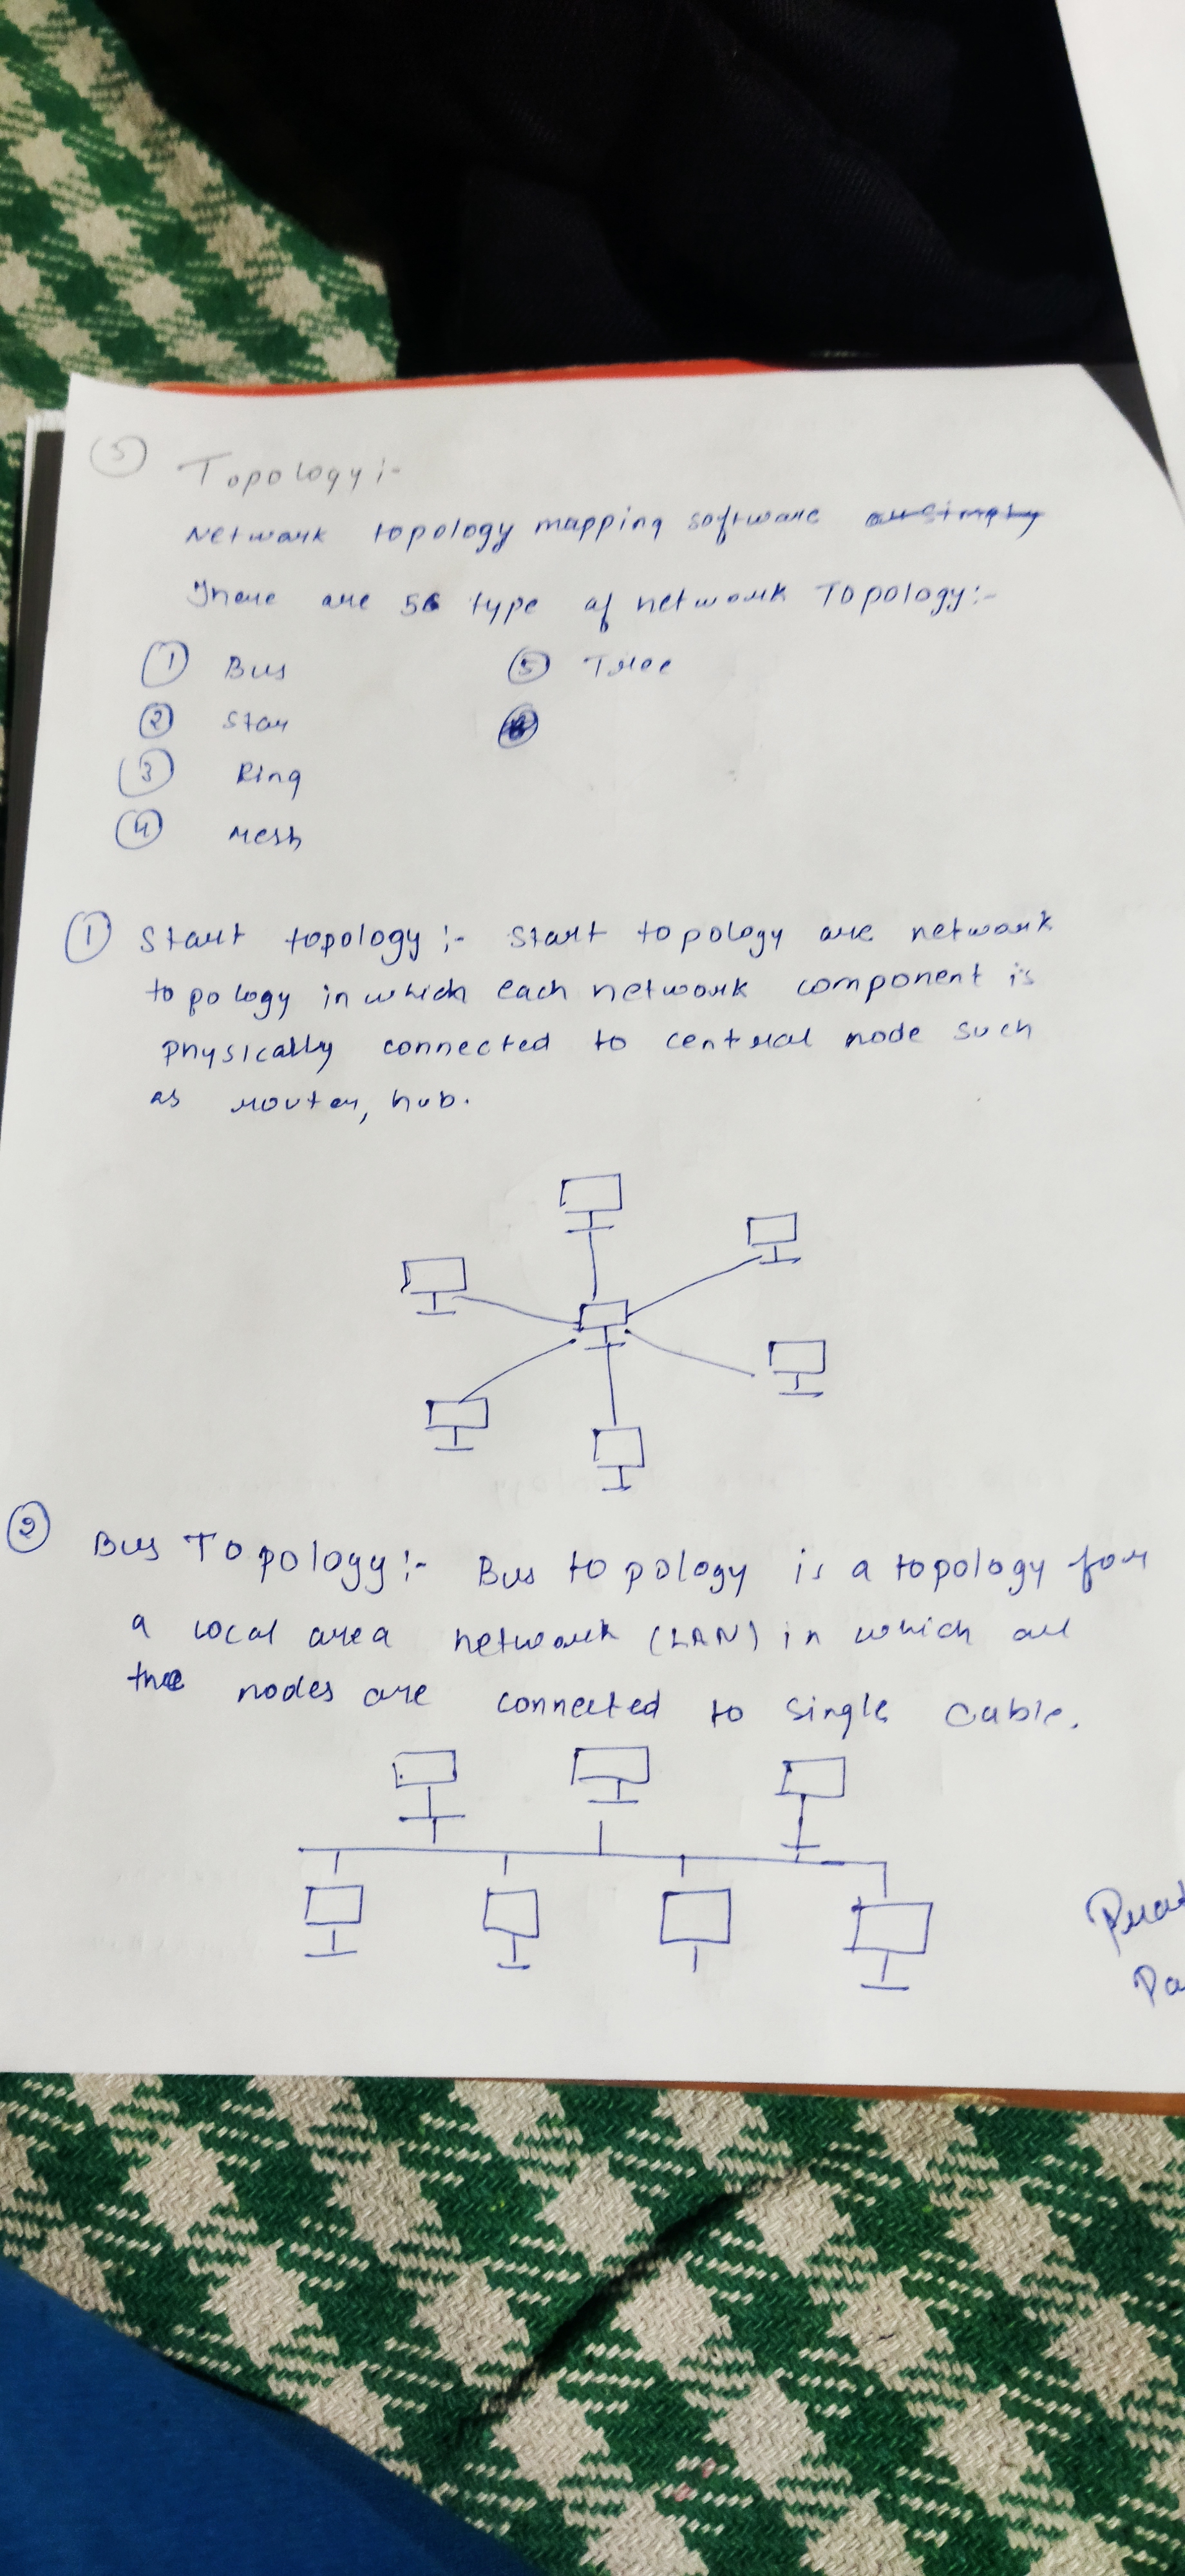 5 Topology :-
Network topology mapping software or simply
There are 5 type of network Topology :-
1 Bus
5 Tree
2 Star
3 Ring
4 Mesh
1 Start topology :- Start topology are network
topology in which each network component is
physically connected to central node such
as router, hub.
2 Bus Topology :- Bus topology is a topology for
a local area network (LAN) in which all
the nodes are connected to single cable.
Pa